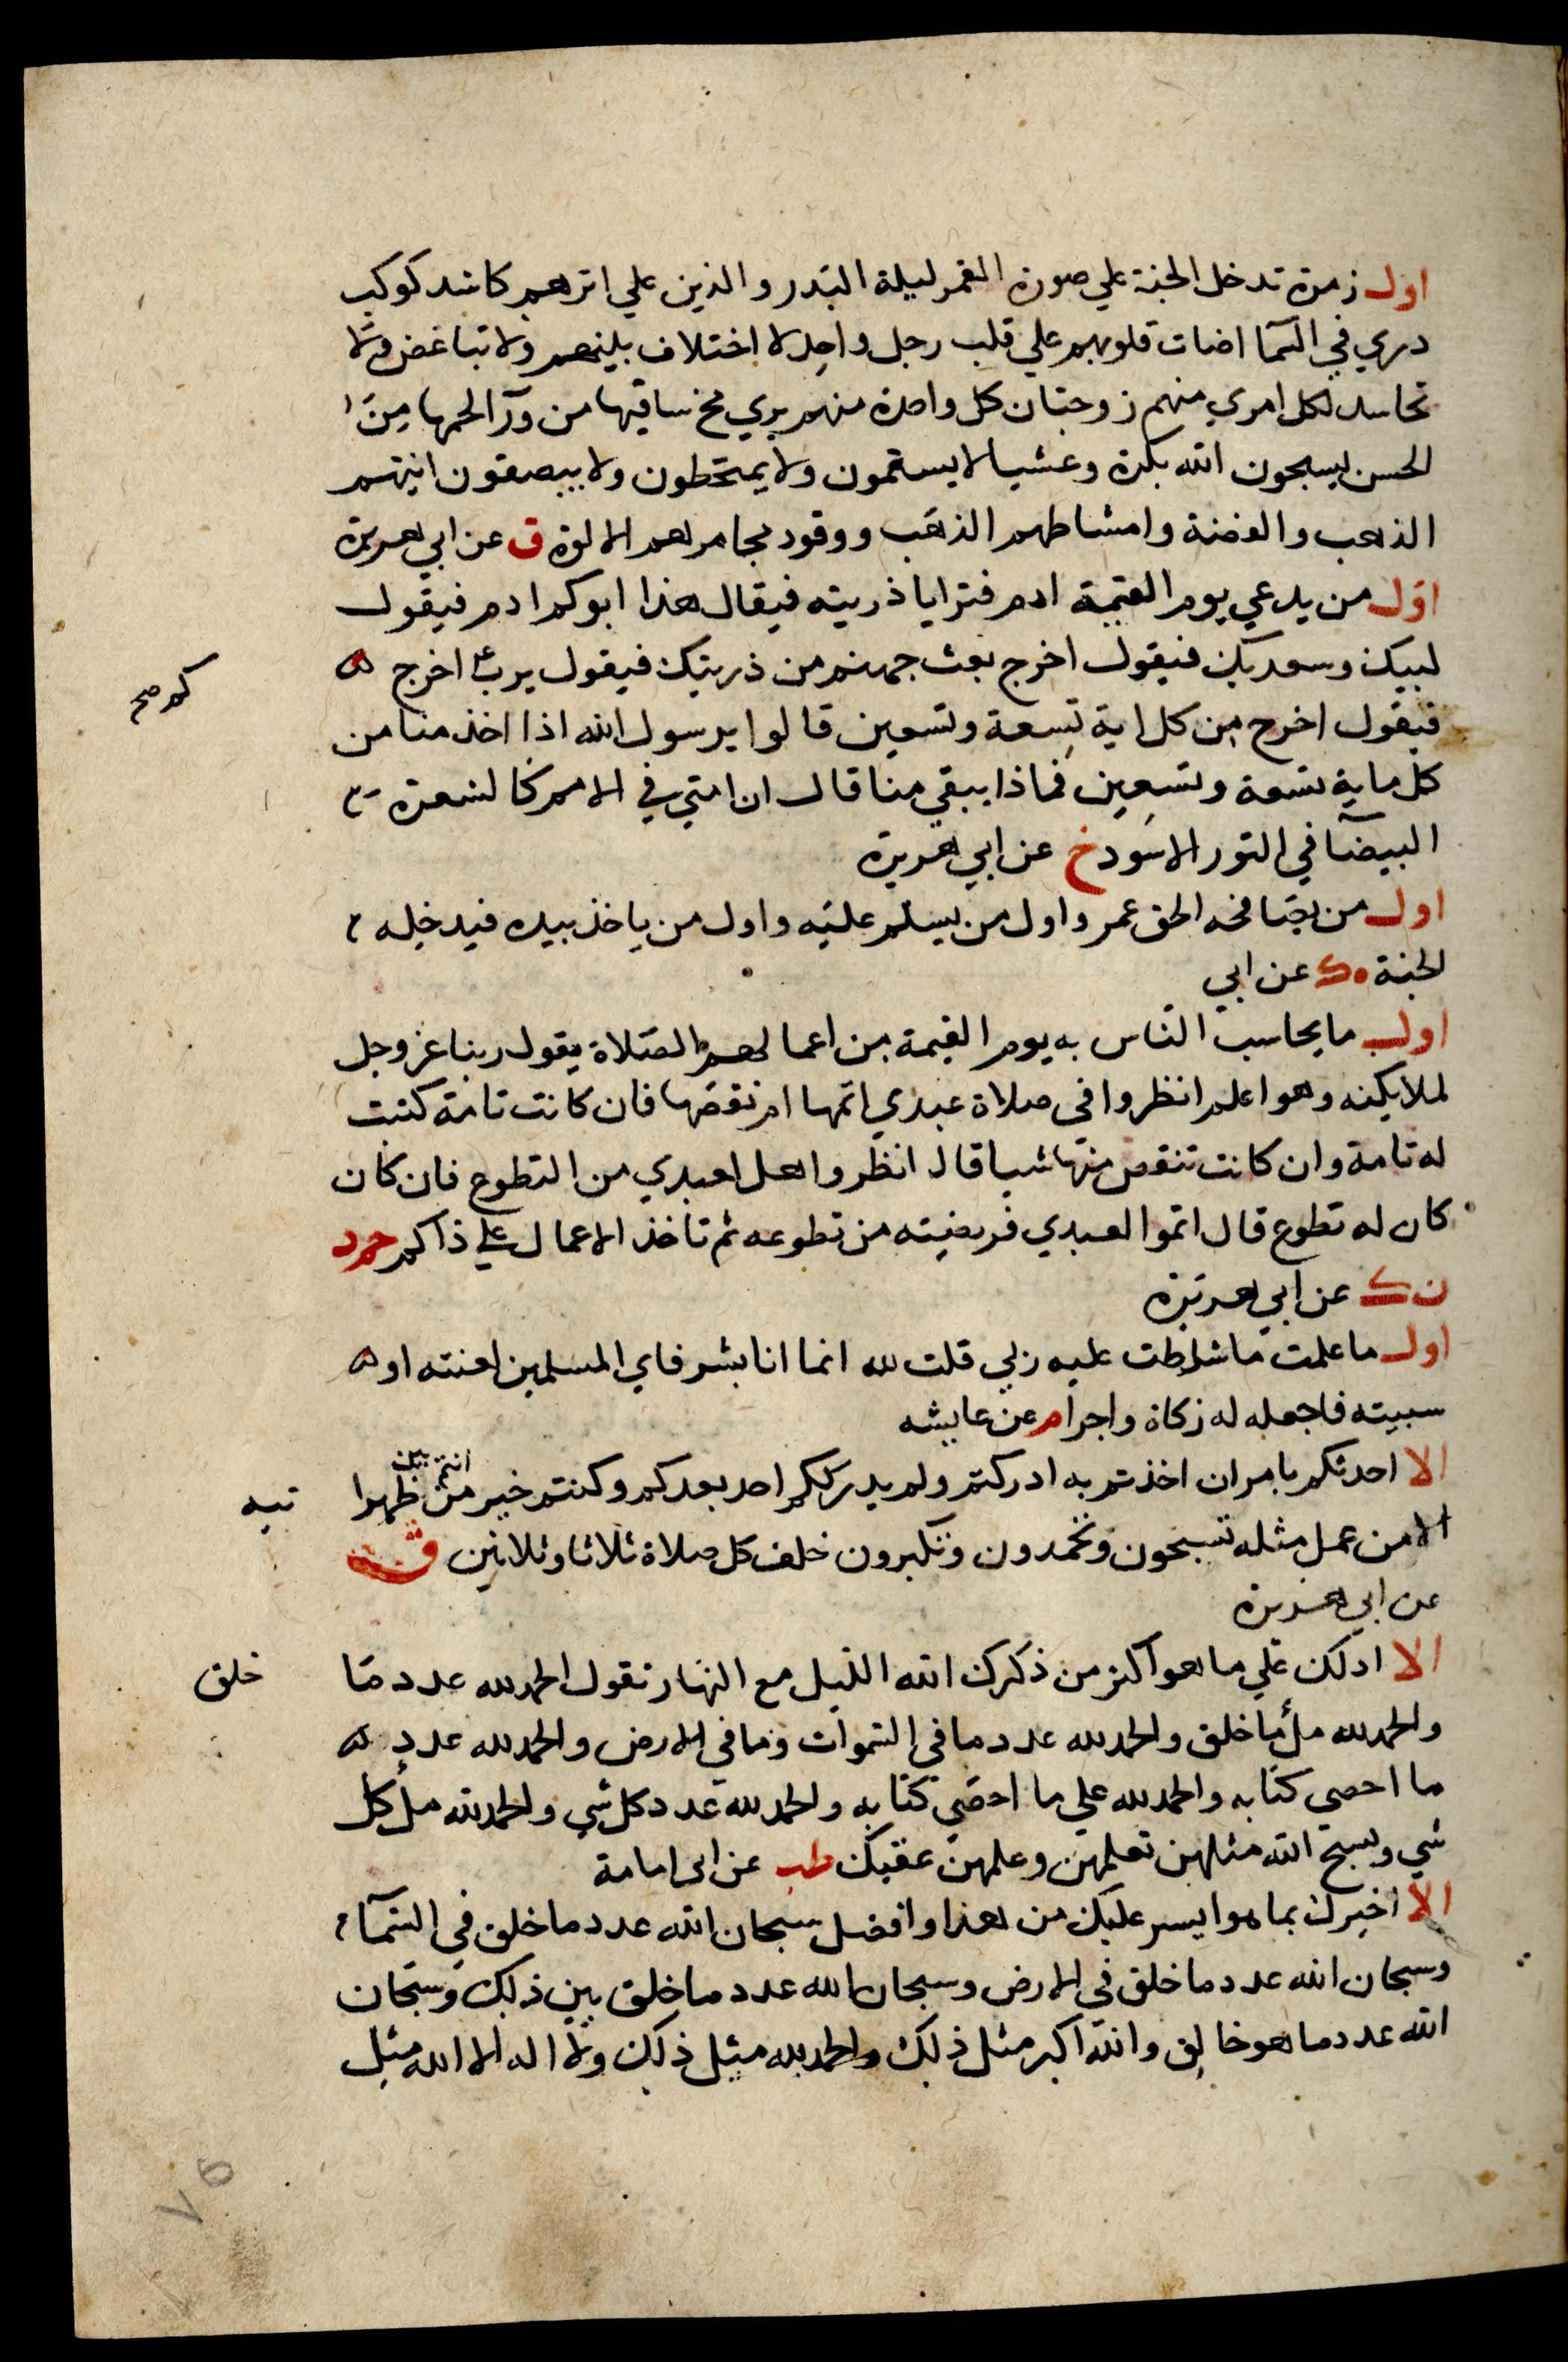 اول زمرة تدخل الجنة علي صورة القمر ليلة البدر والذين علي اثرهم كاشد كوكب
دري في السما اضات قلوبهم علي قلب رجل واحد لا اختلاف بينهم ولا تباغض ولا
تحاسد لكل امري منهم زوجتان كل واحدة منهم يري مخ ساقيها من ورآ لحمها من
الحسن يسبحون الله بكرة وعشيا لا يستمون ولا يمتخطون ولا يبصقون انيتهم
الذهب والفضة وامشاطهم الذهب ووقود مجامرهم الالوة ق عن ابي هريرة
اول من يدعي يوم القيمة ادم فترايا ذريته فيقال هذا ابوكم ادم فيقول
لبيك وسعديك فيقول اخرج بعث جهنم من ذريتك فيقول يرب اخرج
كم صح
فيقول اخرج من كل اية تسعة وتسعين قالوا يرسول الله اذا اخذ منا من
كل ماية تسعة وتسعين فماذا يبقي منا قال ان امتي في الامم كالشعرة
البيضآ في الثور الاسود خ عن ابي هريرة
اول من يصافحه الحق عمر واول من يسلم عليه واول من ياخذ بيده فيدخله
الجنة ه ك عن ابي
اول ما يحاسب الناس به يوم القيمة من اعمالهم الصلاة يقول ربنا عز وجل
لملايكته وهو اعلم انظروا في صلاة عبدي اتمها ام نقصها فان كانت تامة كتبت
له تامة وان كانت تنقص منها شيا قال انظروا هل لعبدي من التطوع فان كان
كان له تطوع قال اتموا لعبدي فريضته من تطوعه ثم تاخذ الاعمال علي ذاكم حم د
ن ك عن ابي هريرة
اول ما علمت ما شارطت عليه ربي قلت لله انما انا بشر فاي المسلمين لعنته او
سببته فاجعله له زكاة واجرا م عن عايشه
الا احدثكم بامر ان اخذتم به ادركتم ولم يدرككم احد بعدكم وكنتم خير من انتم بين ظهرا
نيه
الا من عمل مثله تسبحون وتحمدون وتكبرون خلف كل صلاة ثلاثا وثلاثين ق
عن ابي هريرة
الا ادلك علي ما هو اكثر من ذكرك الله الليل مع النهار تقول الحمد لله عدد ما
خلق
والحمد لله ملأ ما خلق والحمد لله عدد ما في السموات وما في الارض والحمد لله عدد
ما احصي كتابه والحمد لله علي ما احصي كتابه والحمد لله عدد كل شي والحمد لله ملأ كل
شي وتسبح الله مثلهن تعلمهن وعلمهن عقبك طب عن ابي امامة
الا اخبرك بما هو ايسر عليك من هذا وافضل سبحان الله عدد ما خلق في السمآ
وسبحان الله عدد ما خلق في الارض وسبحان الله عدد ما خلق بين ذلك وسبحان
الله عدد ما هو خالق والله اكبر مثل ذلك والحمد لله مثل ذلك ولا اله الا الله مثل